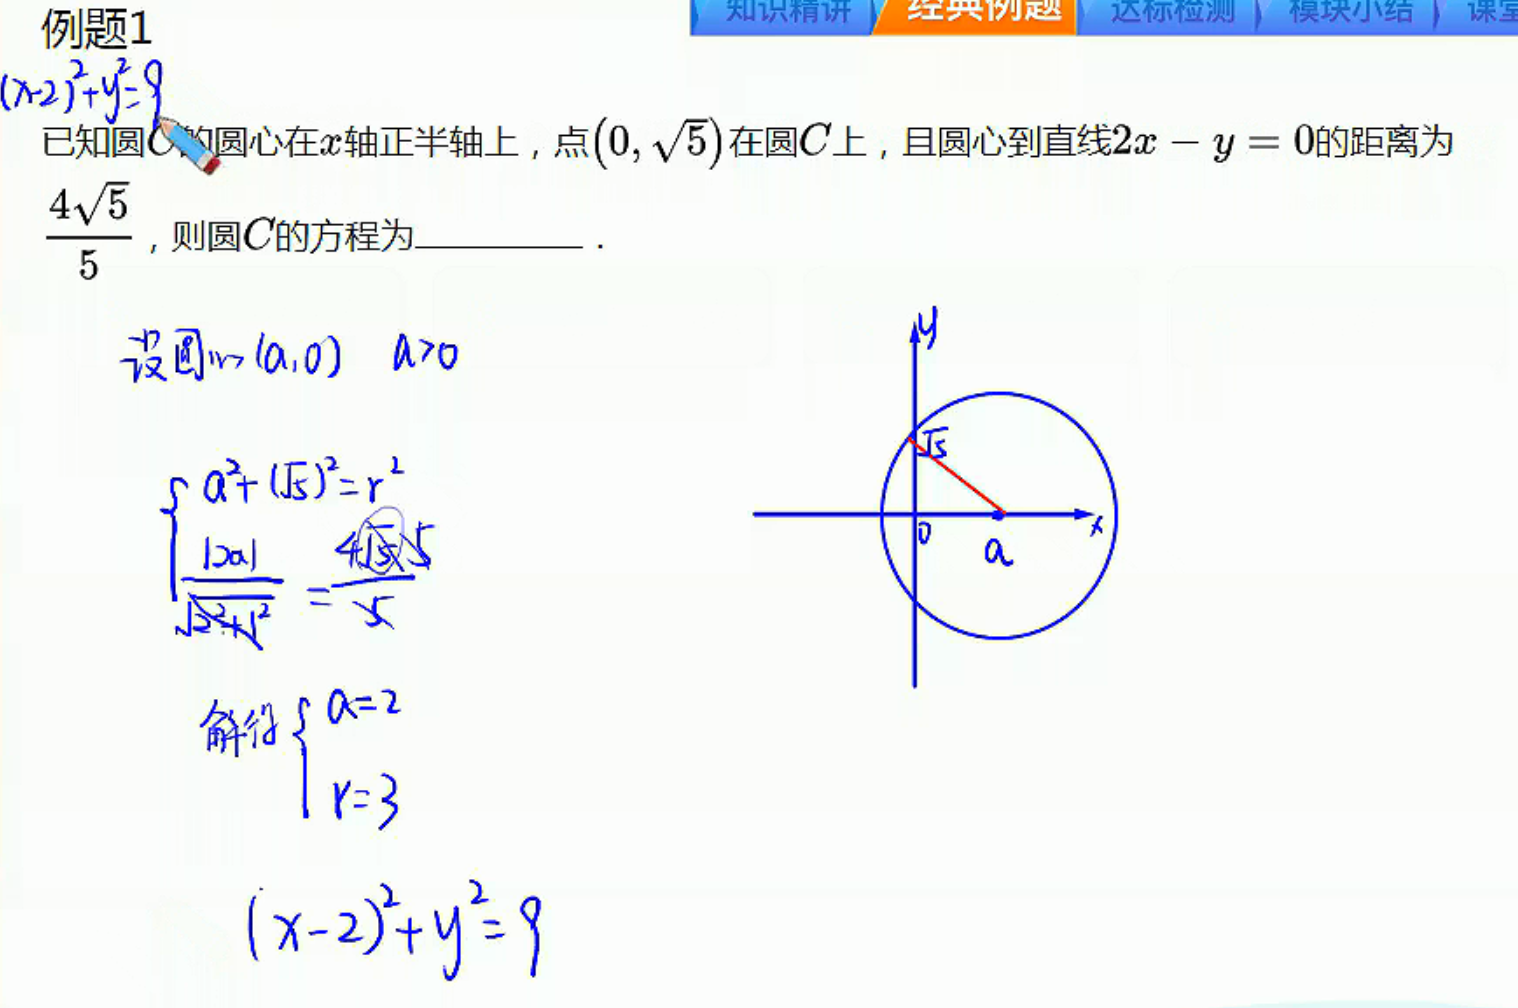 知识精讲 经典例题 达标检测 模块小结 课堂
例题1
(x-2)²+y²=9
已知圆C的圆心在x轴正半轴上，点(0, √5)在圆C上，且圆心到直线2x − y = 0的距离为
4√5/5，则圆C的方程为________．
设圆心(a,0) a>0
a²+(√5)²=r²
|2a|/√2²+1² = 4√5·5/5
解得{a=2
r=3
(x-2)²+y²=9
y
√5
0 a x